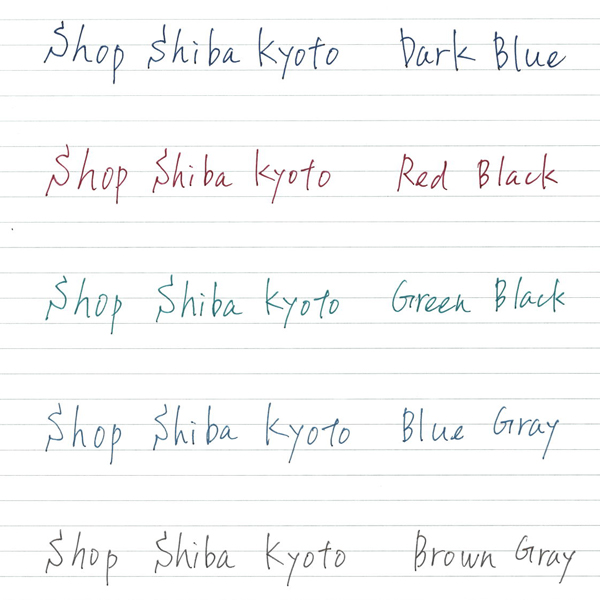 Shop Shiba Kyoto Dark Blue
Shop Shiba Kyoto Red Black
Shop Shiba Kyoto Green Black
Shop Shiba Kyoto Blue Gray
Shop Shiba Kyoto Brown Gray